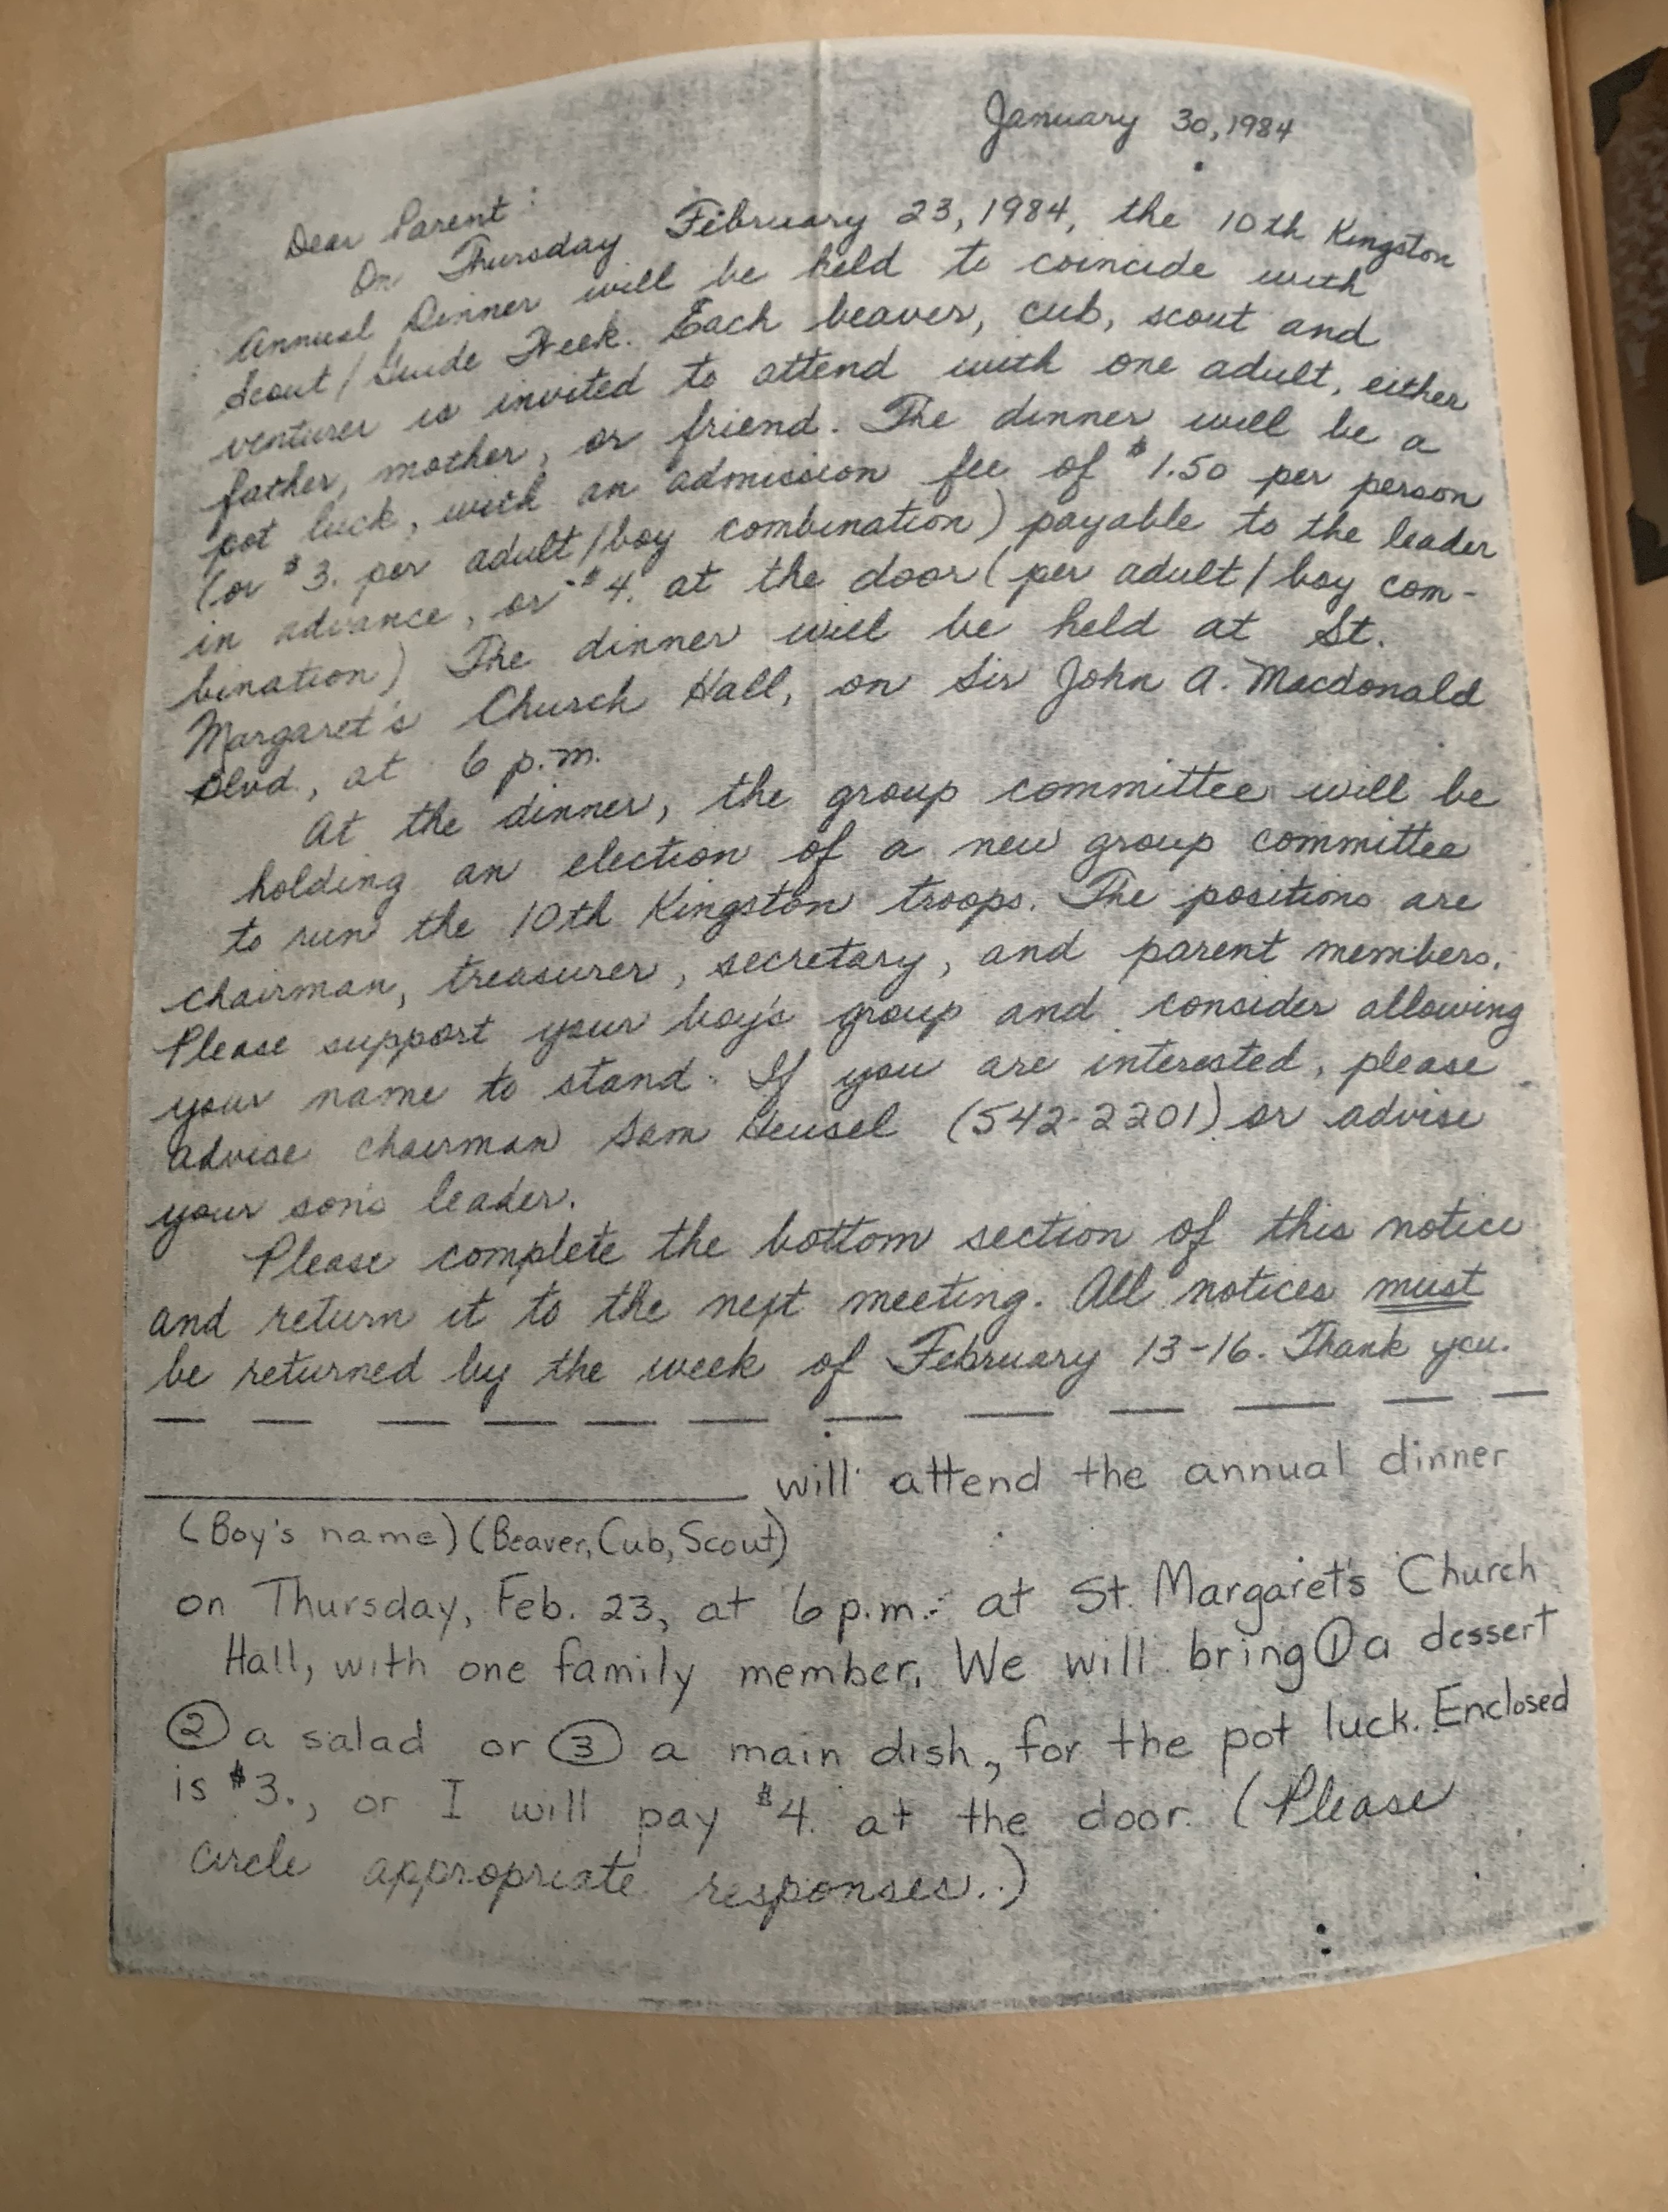 January 30, 1984
Dear Parent:
On Thursday February 23, 1984, the 10th Kingston
Annual Dinner will be held to coincide with
Scout/Guide Week. Each beaver, cub, scout and
venturer is invited to attend with one adult, either
father, mother, or friend. The dinner will be a
pot luck, with an admission fee of $1.50 per person
(or $3. per adult/boy combination) payable to the leader
in advance, or $4. at the door (per adult/boy com-
bination) The dinner will be held at St.
Margaret's Church Hall, on Sir John A. Macdonald
Blvd., at 6 p.m.
At the dinner, the group committee will be
holding an election of a new group committee
to run the 10th Kingston troops. The positions are
chairman, treasurer, secretary, and parent members.
Please support your boy's group and consider allowing
your name to stand. If you are interested, please
advise chairman Sam Heusel (542-2201) or advise
your son's leader.
Please complete the bottom section of this notice
and return it to the next meeting. All notices must
be returned by the week of February 13-16. Thank you.
will attend the annual dinner
(Boy's name) (Beaver, Cub, Scout)
on Thursday, Feb. 23, at 6 p.m. at St. Margaret's Church
Hall, with one family member. We will bring ① a dessert
② a salad or ③ a main dish, for the pot luck. Enclosed
is $3., or I will pay $4. at the door. (Please
circle appropriate responses..)